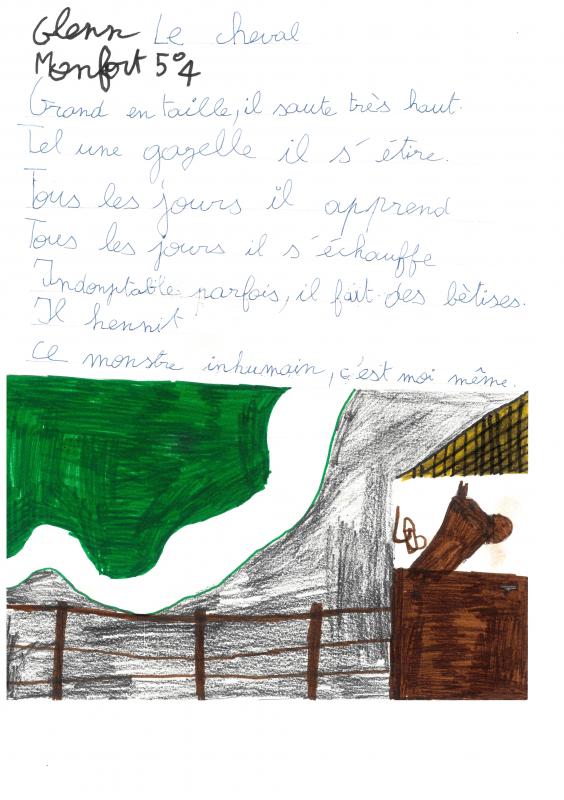 Glenn Le cheval
Monfort 5°4
Grand en taille, il saute très haut.
Tel une gazelle il s'étire.
Tous les jours il apprend
Tous les jours il s'échauffe
Indomptable parfois, il fait des bêtises.
Il hennit
Ce monstre inhumain, c'est moi même.